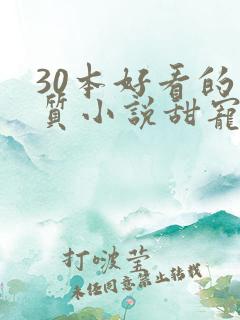 30本好看的
质小说甜宠
打啵莹
未经同意禁止转载